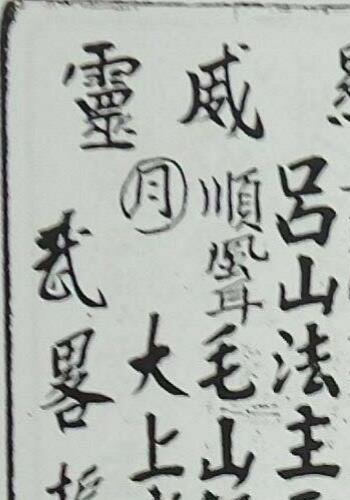 威
靈
呂山法主
順風耳毛山
月大上
武畧